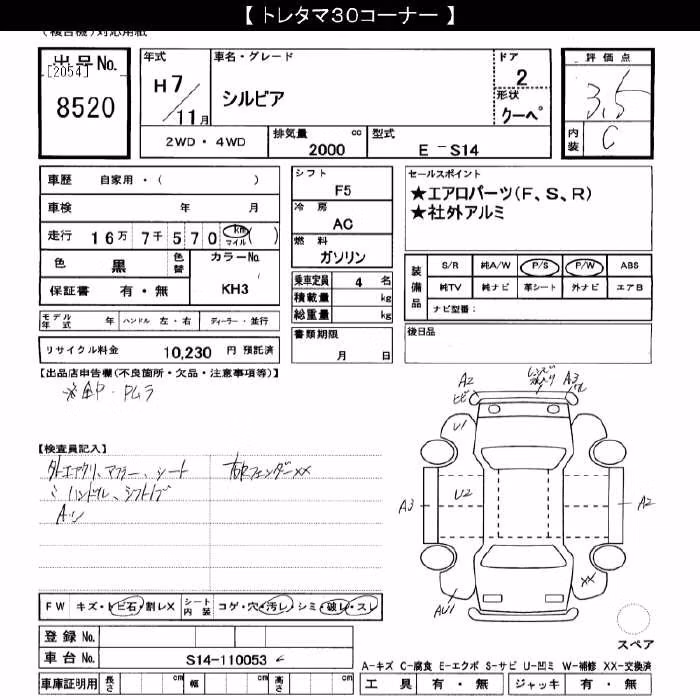 【 トレタマ30コーナー 】
(複合機)対応用紙
出品No.
[2054]
8520
年式
H7
11月
車名・グレード
シルビア
ドア
2
形状
クーペ
評価点
3.5
内装
C
2WD・4WD
排気量 cc
2000
型式
E-S14
車歴 自家用・( )
車検 年 月
走行 16万 7千 5 7 0 km マイル ( )
色 黒 色替
カラーNo.
KH3
保証書 有・無
シフト
F5
冷房
AC
燃料
ガソリン
乗車定員 4 名
積載量 kg
総重量 kg
セールスポイント
★エアロパーツ(F、S、R)
★社外アルミ
装備品
S/R 純A/W P/S P/W ABS
純TV 純ナビ 革シート 外ナビ エアB
ナビ型番:
モデル年式 年 ハンドル 左・右 ディーラー・並行
リサイクル料金 10,230 円 預託済
書類期限
月 日
後日品
【出品店申告欄(不良箇所・欠品・注意事項等)】
【検査員記入】
外エアクリ、マフラー、シート
ハンドル、シフトノブ
右フェンダーXX
A2
ヒビ
A3
U1
A3
U2
A2
XX
AU1
スペア
FW キズ・トビ石・割レX
シート内装 コゲ・穴・汚レ・シミ・破レ・スレ
登録 No.
車台 No. S14-110053
A-キズ C-腐食 E-エクボ S-サビ U-凹ミ W-補修 XX-交換済
車庫証明用 長さ cm 幅 cm 高さ cm
工具 有・無 ジャッキ 有・無